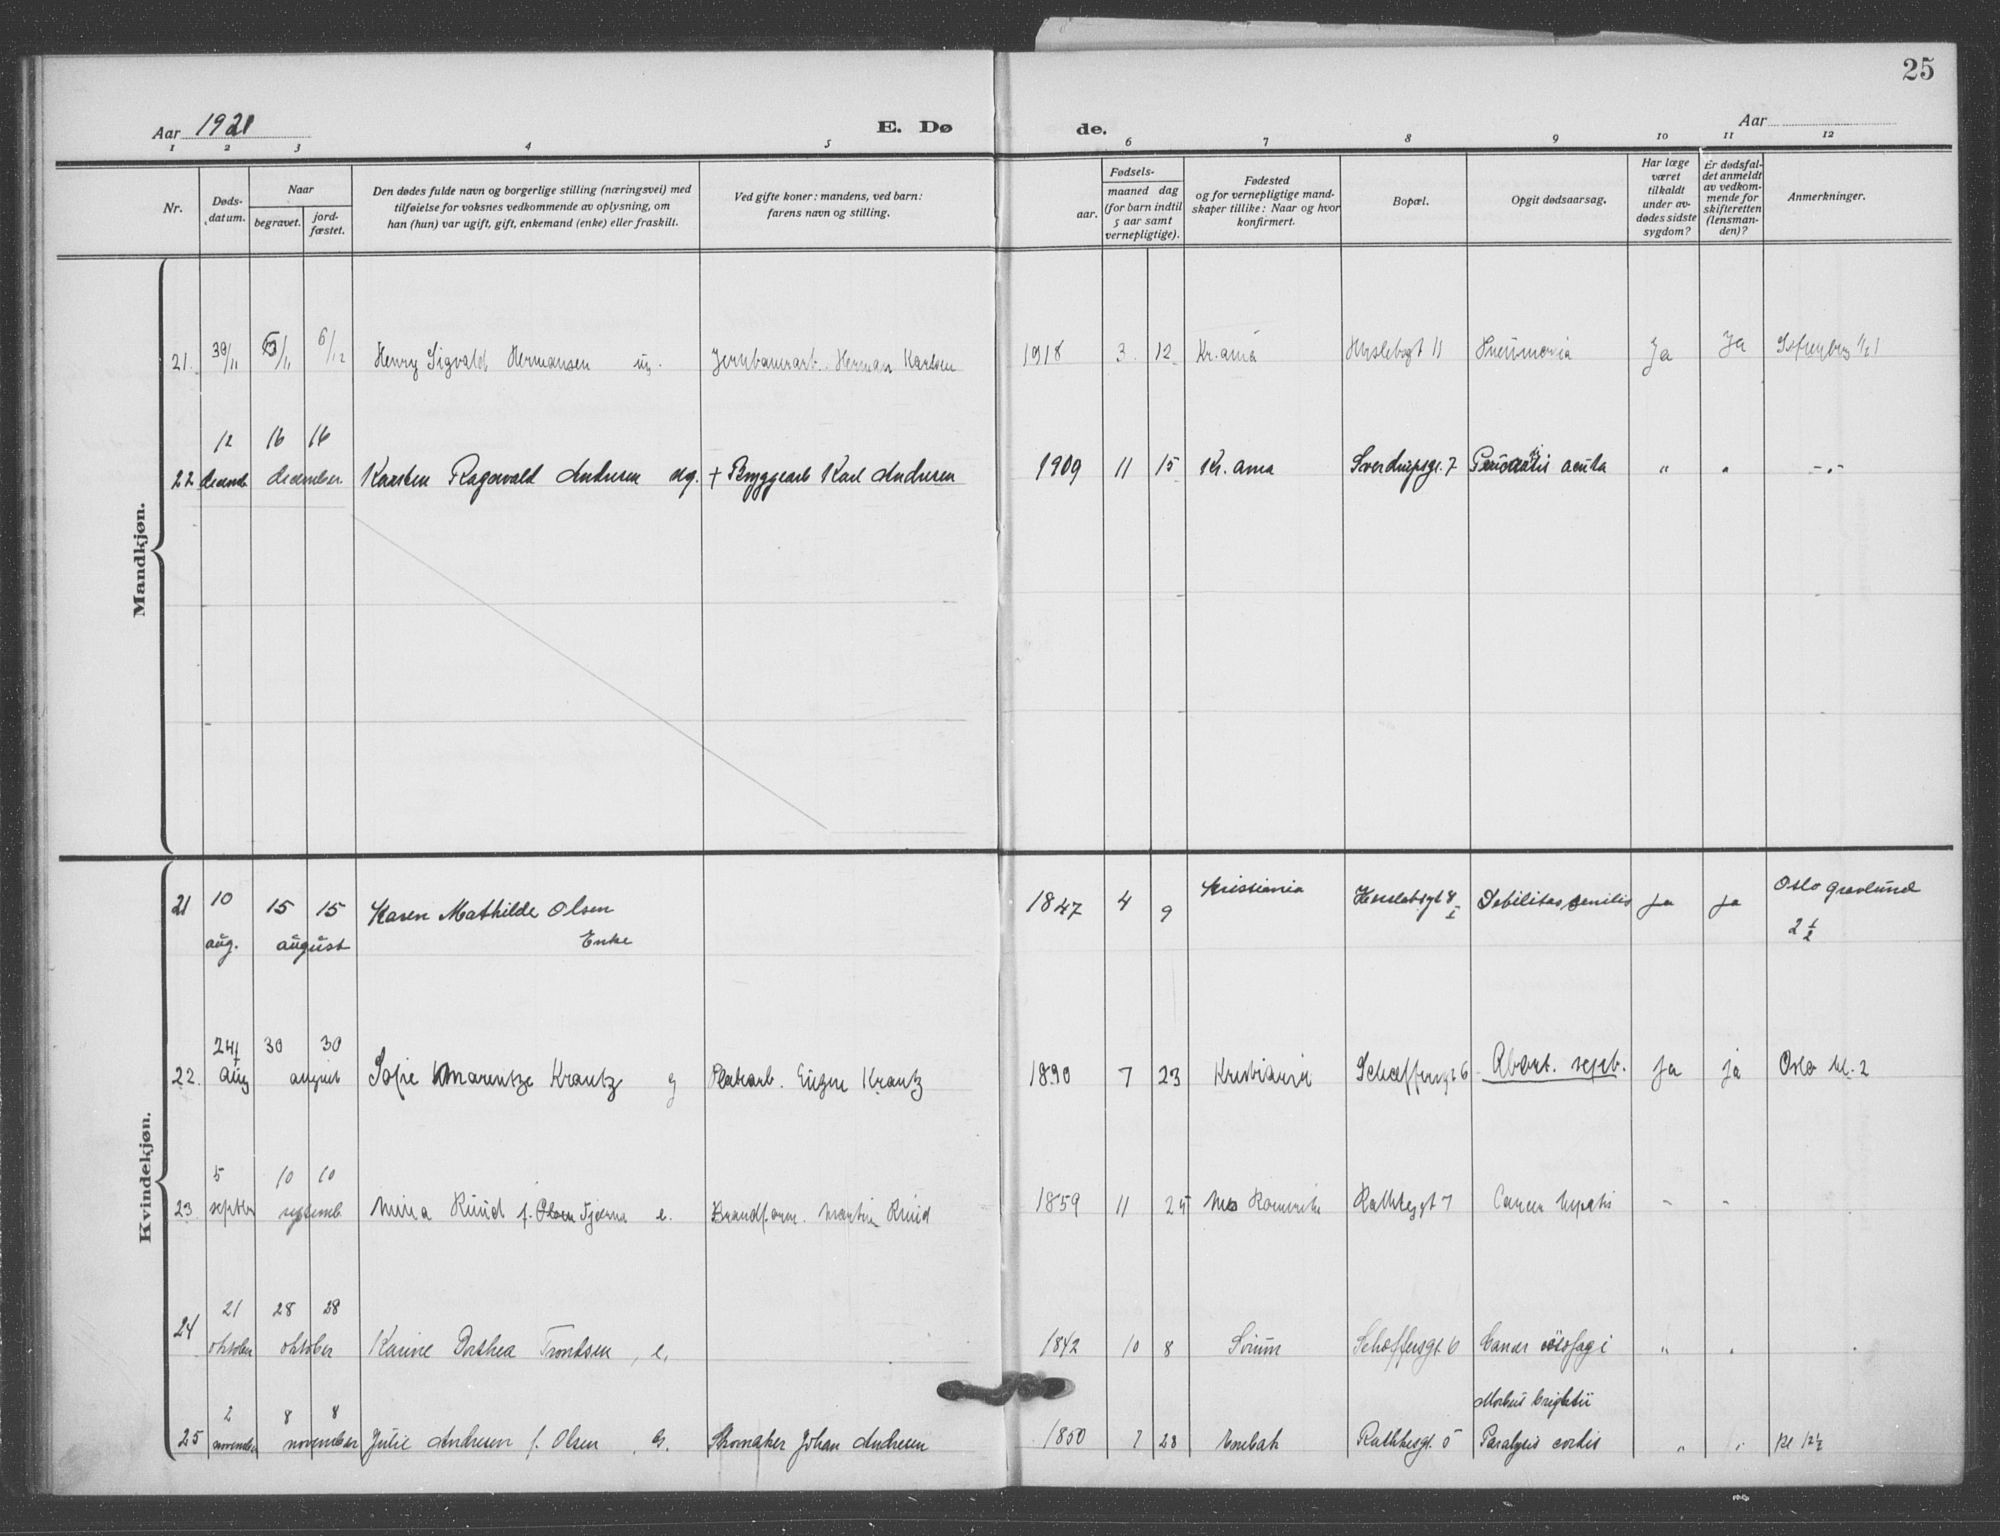 25
Aar 1921
E. Dø
de.
Aar
1 2 3 4 5 6 7 8 9 10 11 12
Nr.
Døds-
datum.
Naar
begravet.
jord-
fæstet.
Den dødes fulde navn og borgerlige stilling (næringsvei) med
tilføielse for voksnes vedkommende av oplysning, om
han (hun) var ugift, gift, enkemand (enke) eller fraskilt.
Ved gifte koner: mandens, ved barn:
farens navn og stilling.
Fødsels-
aar.
maaned dag
(for barn indtil
5 aar samt
vernepligtige).
Fødested
og for vernepligtige mand-
skaper tillike: Naar og hvor
konfirmert.
Bopæl.
Opgit dødsaarsag.
Har læge
været
tilkaldt
under av-
dødes sidste
sygdom?
Er dødsfal-
det anmeldt
av vedkom-
mende for
skifteretten
(lensman-
den)?
Anmerkninger.
Mandkjøn.
21. 30/11 6/12 Henry Sigvald Hermansen ug. Jernbanearb. Herman Karlsen 1918 3 12 Kr.ania Heslebgt 11 Pneumonia Ja Ja
12 16 16
22 decemb december Karsten Ragnvald Andresen ug. + Bryggearb Karl Andresen 1909 11 15 Kr. ania Sverdrupsgt. 7 acuta " " -"-
Kvindekjøn.
21 10 15 15 Karen Mathilde Olsen 1847 4 9 Kristiania Herslebsgt 8 Debilitas senilis Ja Ja Oslo gravlund
aug. august Enke I 2 1/2
24/ 30 30
22. aug august Sofie Marentze Krantz g Platearb. Eugen Krantz 1890 7 23 Kristiania Schæffersgt 6 Abort. sept. Ja ja Oslo kl. 2
5 10 10
23. septbr septemb. Mina Ruud f. Olsen Tjerna e. Brandform. Martin Ruud 1859 11 25 Nes Romerike Rathkesgt 7 Cancer hepatis - -
21 28 28
24 oktober oktober Karine Dorthea Trondsen, e. 1842 10 8 Sørum Schæffersgt. 6 Cancer oesofagi " "
2 8 8 Morbus brightii
25 november november Julie Andresen f. Olsen, G. Skomaker Johan Andresen 1850 7 28 Enebak Rathkesgt. 5 Paralysis cordis " " kl 12 1/2